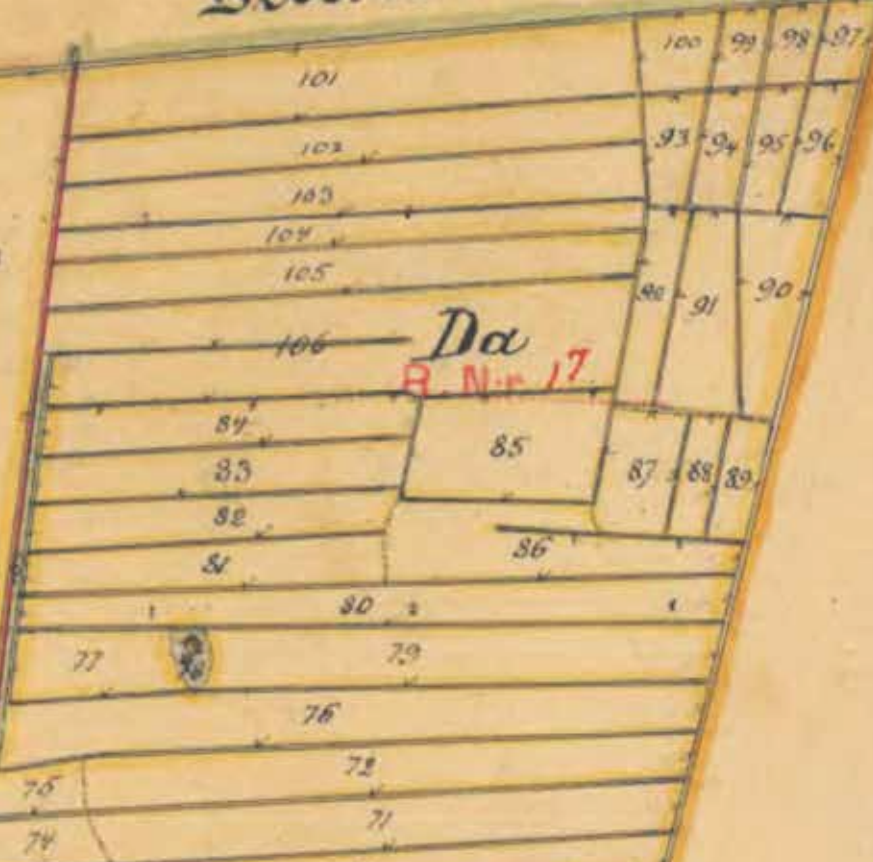 101 100 99 98 97
102 93 94 95 96
103
104
105 92 91 90
106 Da
R. Nr. 17
84
83 85 87 88 89
82
81 86
80
77 79
76
72
75
71
74